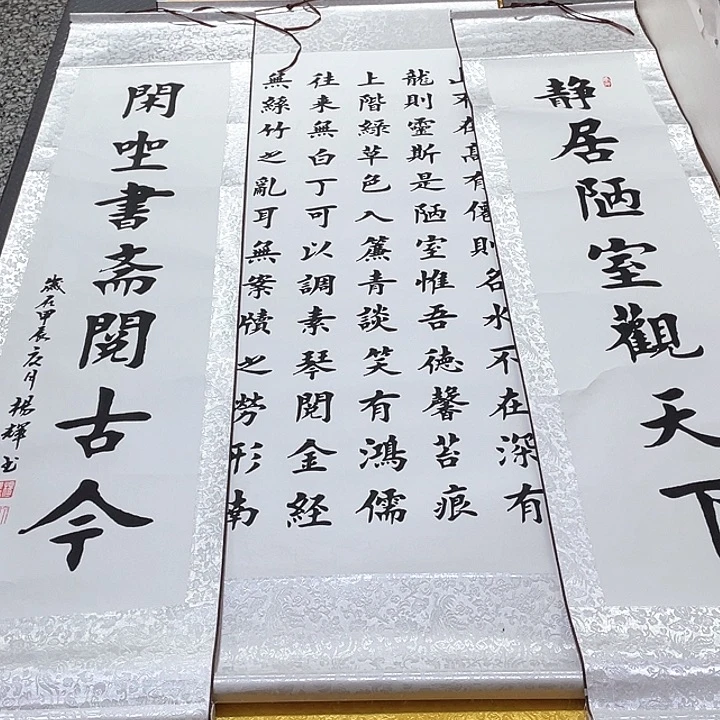 静居陋室觀天下
山不在高有僊則名水不在深有
龍則靈斯是陋室惟吾德馨苔痕
上階綠草色入簾青談笑有鴻儒
往来無白丁可以調素琴閱金経
無絲竹之亂耳無案牘之勞形南
閑坐書斎閱古今
歲在甲辰月楊輝书